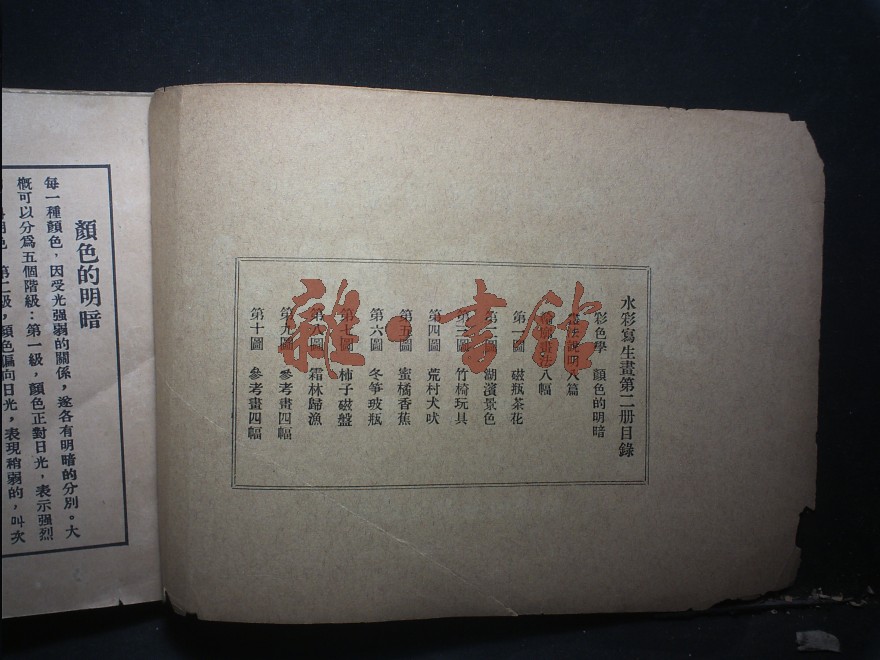 水彩寫生畫第二册目錄
彩色學 顏色的明暗
說明八篇
畫法八幅
第一圖 磁瓶茶花
第二圖 湖濱景色
第三圖 竹椅玩具
第四圖 荒村犬吠
第五圖 蜜橘香蕉
第六圖 冬筍玻瓶
第七圖 柿子磁盤
第八圖 霜林歸漁
第九圖 參考畫四幅
第十圖 參考畫四幅
雜·書館
顏色的明暗
每一種顏色，因受光强弱的關係，遂各有明暗的分別。大
概可以分爲五個階級：第一級，顏色正對日光，表示强烈
第二級，顏色偏向日光，表現稍弱的，叫次